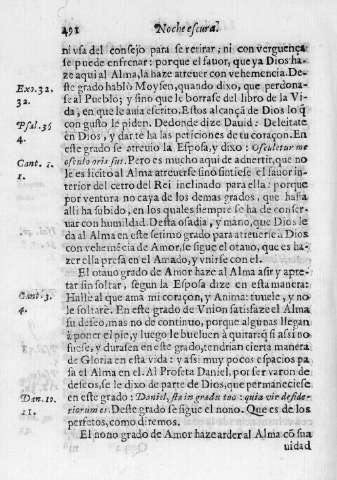 492 Noche escura.
ni vsa del consejo para se retirar; ni con verguença
se puede enfrenar: porque el fauor, que ya Dios ha-
ze aqui al Alma, la haze atreuer con vehemencia. De-
ste grado hablo Moysen, quando dixo, que perdona-
Exo. 32.
se al Pueblo; y sino que le borrase del libro de la Vi-
32.
da, en que le auia escrito. Estos alcançã de Dios lo q̃
con gusto le piden. Dedonde dize Dauid: Deleitate
Psal. 36
en Dios, y dar te ha las peticiones de tu coraçon. En
4.
este grado se atreuio la Esposa, y dixo: Osculetur me
Cant. 1.
osculo oris sui. Pero es mucho aqui de aduertir, que no
1.
le es licito al Alma atreuerse sino sintiese el fauor in-
terior del cetro del Rei inclinado para ella: porque
por ventura no caya de los demas grados, que hasta
alli ha subido, en los quales siempre se ha de conser-
uar con humildad. Desta osadia, y mano, que Dios le
da al Alma en este setimo grado para atreuerse a Dios
con vehemẽcia de Amor, se sigue el otauo, que es ha-
zer ella presa en el Amado, y vnirse con el.
El otauo grado de Amor haze al Alma asir y apre-
tar sin soltar, segun la Esposa dize en esta manera:
Cant. 3.
Hallè al que ama mi coraçon, y Anima: tuuele, y no
4.
le soltarè. En este grado de Vnion satisfaze el Alma
su deseo, mas no de continuo, porque algunas llegan
à poner el pie, y luego le bueluen à quitar: q̃ si asi no
fuese, y durasen en este grado, ternian cierta manera
de Gloria en esta vida: y asi muy pocos espacios pa-
sa el Alma en el. Al Profeta Daniel, por ser varon de
deseos, se le dixo de parte de Dios, que permaneciese
Dan. 10.
en este grado: Daniel, sta in gradu tuo: quia vir deside-
11.
riorum es. Deste grado se sigue el nono. Que es de los
perfetos, como diremos.
El nono grado de Amor haze arder al Alma cõ sua
uidad